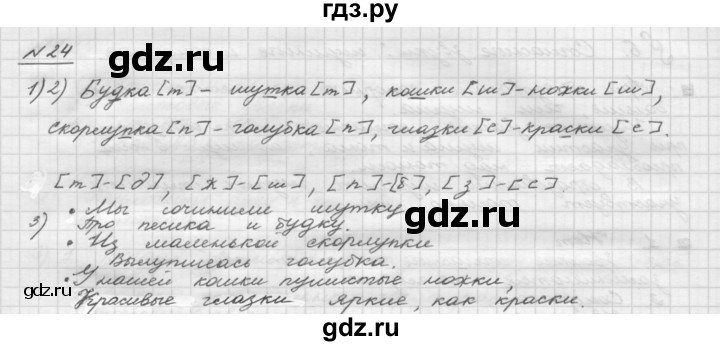 гдз.ру
№24
1)2) Будка [т] - шутка [т], кошки [ш] - ножки [ш],
скорлупка [п] - голубка [п], глазки [с] - краски [с].
[т]-[д], [ж]-[ш], [п]-[б], [з]-[с]
3) • Мы сочинили шутку
Про песика и будку.
• Из маленькой скорлупки
Вылупилась голубка.
• У нашей кошки пушистые ножки,
Красивые глазки яркие, как краски.
gdz.ru
gdz.ru
gdz.ru
gdz.ru
gdz.ru
gdz.ru
gdz.ru
gdz.ru